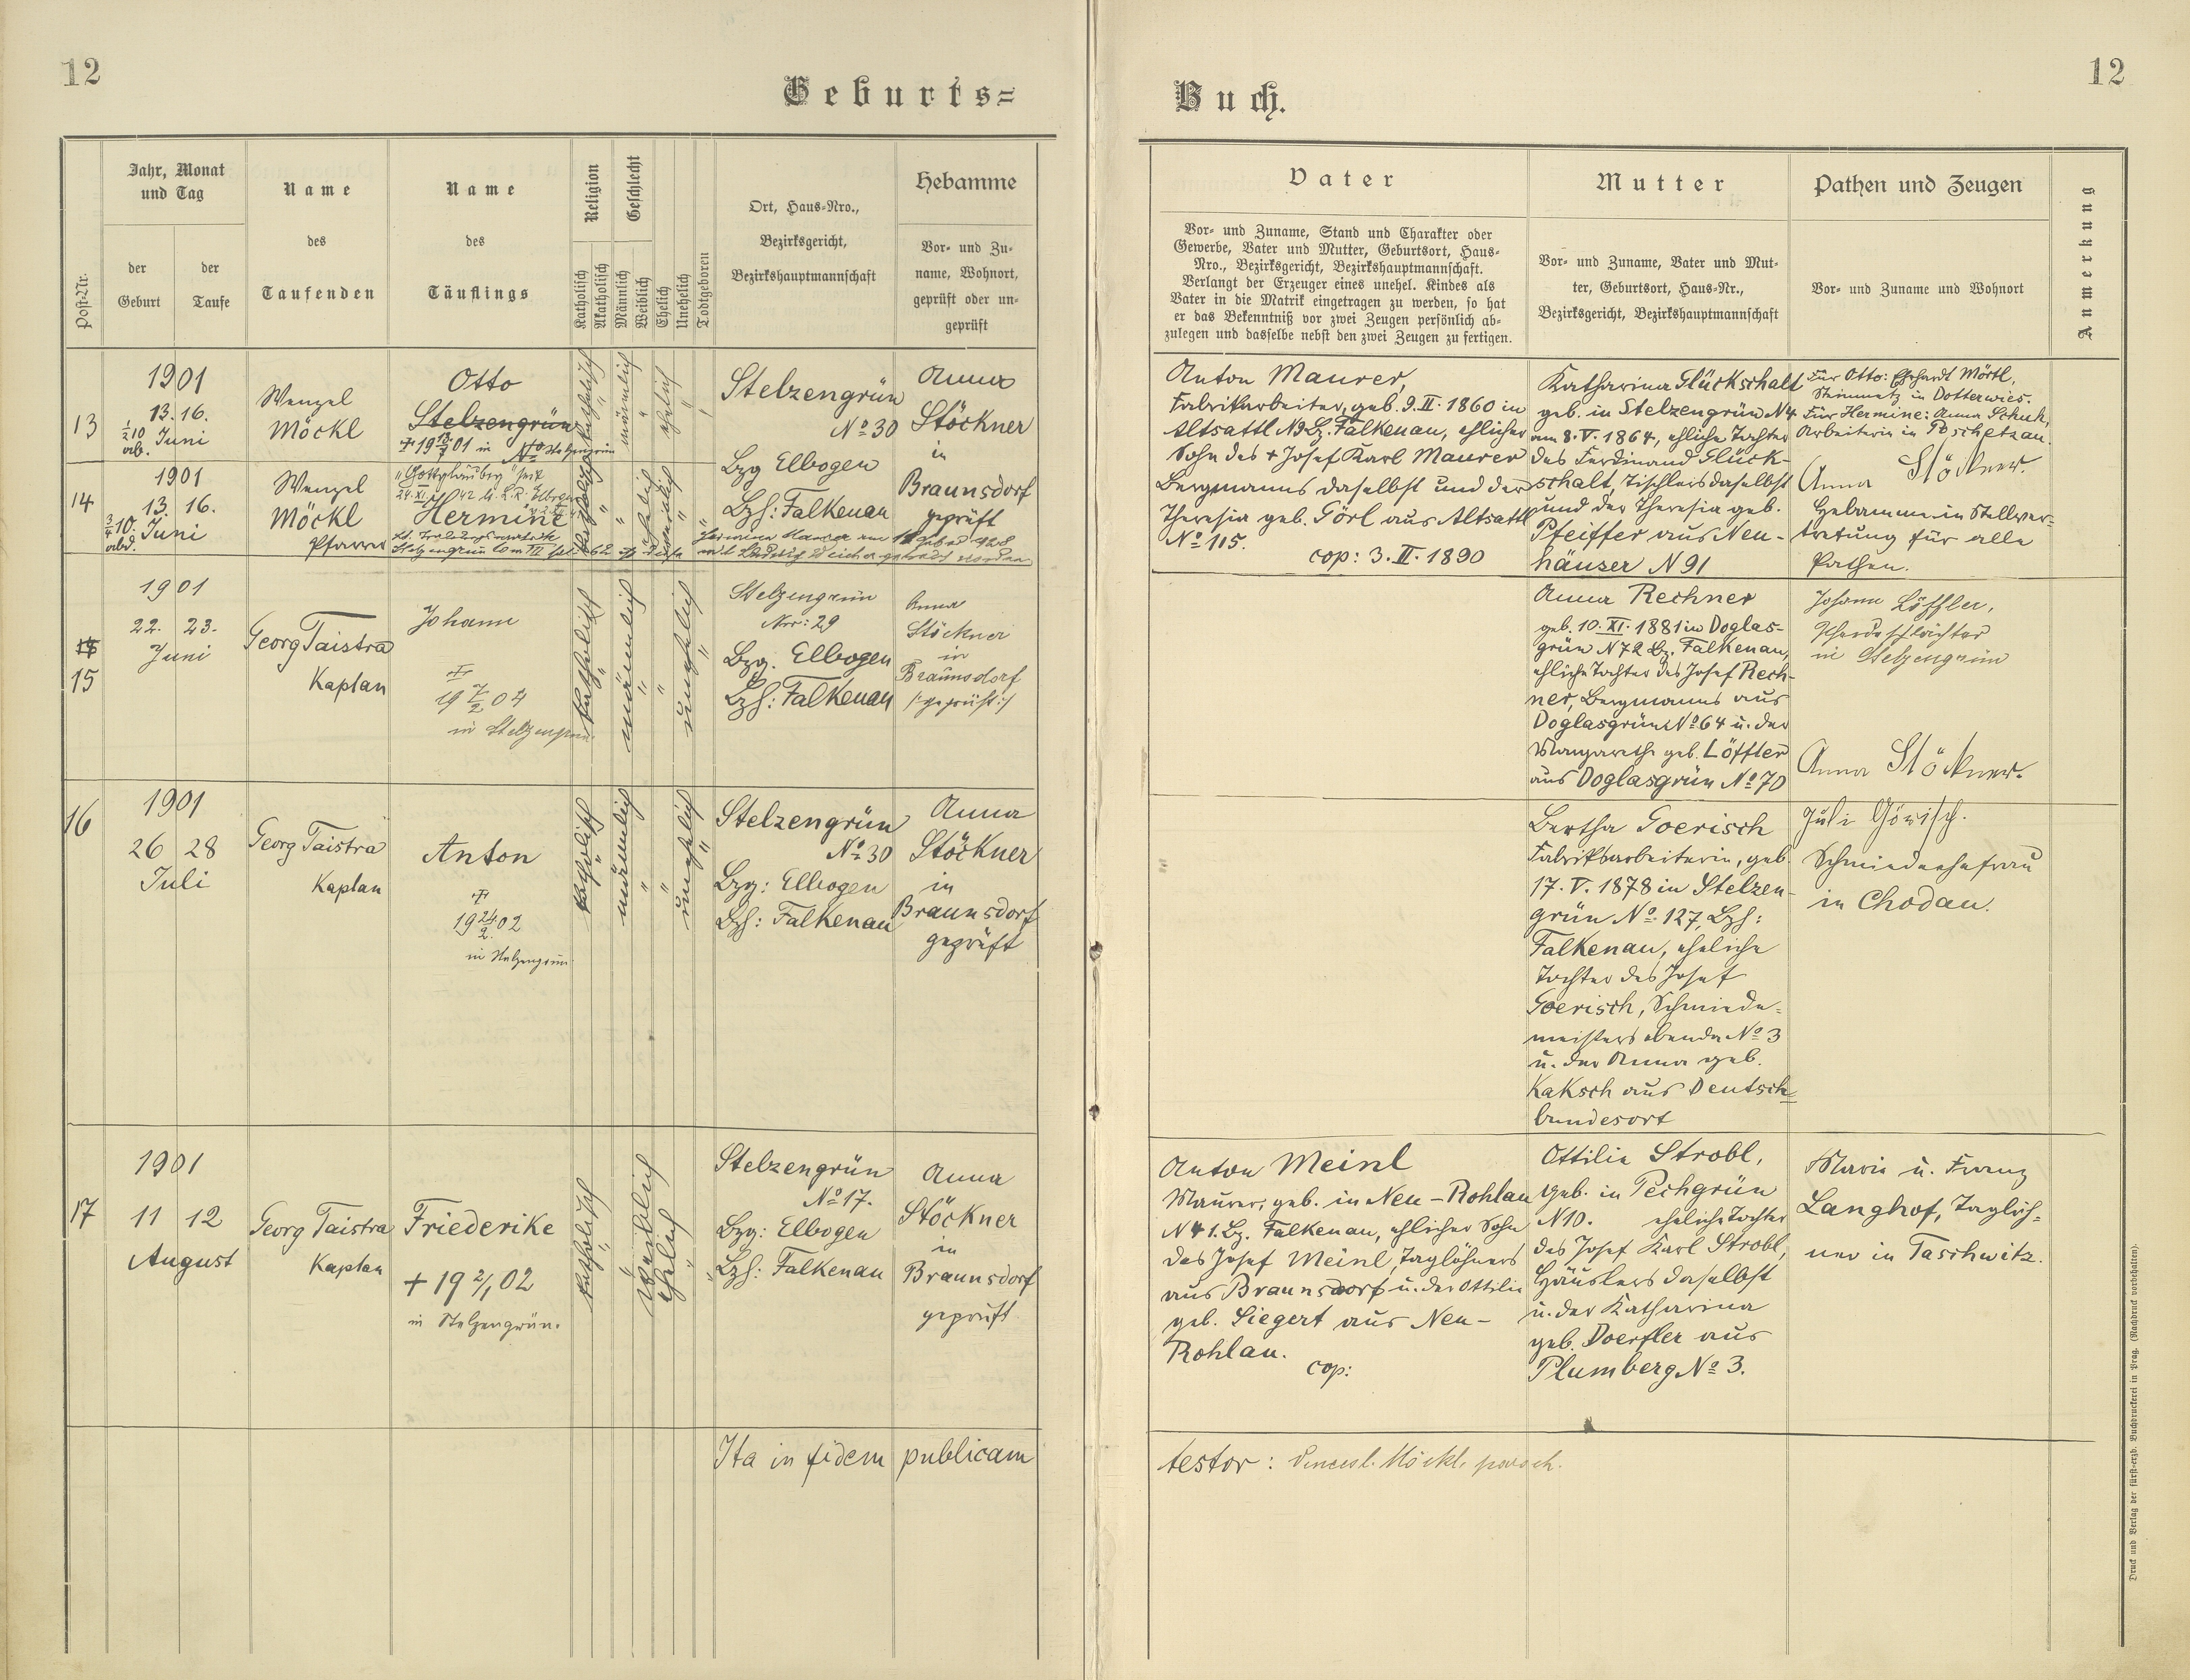 12
Geburts=
Jahr, Monat
und Tag
der
Geburt
der
Taufe
Post-Nr.
Name
des
Taufenden
Name
des
Täuflings
Religion
Katholisch
Akatholisch
Geschlecht
Männlich
Weiblich
Ehelich
Unehelich
Todtgeboren
Ort, Haus-Nro.,
Bezirksgericht,
Bezirkshauptmannschaft
Hebamme
Vor- und Zu-
name, Wohnort,
geprüft oder un-
geprüft
13
1901
13. 16.
1/2 10 Juni
ab.
Wenzel
Möckl
Otto
Stelzengrün
in Stelzengrün
katholisch
männlich
ehelich
Stelzengrün
No 30
Bzg Elbogen
Bzh: Falkenau
Anna
Stöckner
in
Braunsdorf
geprüft
14
1901
13. 16.
3/4 10. Juni
abd.
Wenzel
Möckl
Pfarrer
"Gottgläubig" seit
Hermine
katholisch
weiblich
ehelich
15
1901
22. 23.
Juni
Georg Taistra
Kaplan
Johann
+
in Stelzengrün
katholisch
männlich
unehelich
Stelzengrün
Nro: 29
Bzg. Elbogen
Bzh: Falkenau
Anna
Stöckner
in
Braunsdorf
/:geprüft:/
16
1901
26 28
Juli
Georg Taistra
Kaplan
Anton
+
19 24/2 02
in Stelzengrün.
katholisch
männlich
unehelich
Stelzengrün
No 30
Bzg: Elbogen
Bzh: Falkenau
Anna
Stöckner
in
Braunsdorf
geprüft
17
1901
11 12
August
Georg Taistra
Kaplan
Friederike
+ 19 2/1 02
in Stelzengrün.
katholisch
weiblich
ehelich
Stelzengrün
No 17.
Bzg: Elbogen
Bzh: Falkenau
Anna
Stöckner
in
Braunsdorf
geprüft
Ita in fidem publicam
12
Buch.
Vater
Vor- und Zuname, Stand und Charakter oder
Gewerbe, Vater und Mutter, Geburtsort, Haus-
Nro., Bezirksgericht, Bezirkshauptmannschaft.
Verlangt der Erzeuger eines unehel. Kindes als
Vater in die Matrik eingetragen zu werden, so hat
er das Bekenntniß vor zwei Zeugen persönlich ab-
zulegen und dasselbe nebst den zwei Zeugen zu fertigen.
Mutter
Vor- und Zuname, Vater und Mut-
ter, Geburtsort, Haus-Nr.,
Bezirksgericht, Bezirkshauptmannschaft
Pathen und Zeugen
Vor- und Zuname und Wohnort
Anmerkung
Anton Maurer,
Fabrikarbeiter, geb. 9. II. 1860 in
Altsattl N9 Bz. Falkenau, ehlicher
Sohn des + Josef Karl Maurer
Bergmanns daselbst und der
Theresia geb. Görl aus Altsattl
No 115.
cop: 3. II. 1890
Katharina Glückschalt
geb. in Stelzengrün N4
am 8. V. 1864, ehliche Tochter
des Ferdinand Glück-
schalt, Tischlers daselbst
und der Theresia geb.
Pfeiffer aus Neu-
häuser N 91
Für Otto: Ehrhardt Mörtl,
Steinmetz in Dotterwies.
Für Hermine: Anna Schuh,
Arbeiterin in Poschetzau.
Anna Stöckner.
Hebamme in Stellver-
tretung für alle
Pathen.
Anna Rechner
geb. 10. XI. 1881 in Doglas-
grün N72 Bz. Falkenau,
ehliche Tochter des Josef Rech-
ner, Bergmanns aus
Doglasgrün No 64 u. der
Margarethe geb. Löffler
aus Doglasgrün No 70
Johann Löffler,
in Stelzengrün
Anna Stöckner.
Bertha Goerisch
Fabriksarbeiterin, geb.
17. V. 1878 in Stelzen-
grün No 127, Bzh:
Falkenau, eheliche
Tochter des Josef
Goerisch, Schmiede-
meisters ebenda No 3
u. der Anna geb.
Kaksch aus Deutsch-
bundesort
Juli Görisch.
Schmiedeehefrau
in Chodau.
Anton Meinl
Maurer, geb. in Neu-Rohlau
N 41. Bz. Falkenau, ehlicher Sohn
des Josef Meinl, Taglöhners
aus Braunsdorf u. der Ottilie
geb. Siegert aus Neu-
Rohlau.
cop:
Ottilie Strobl,
geb. in Pechgrün
N10. eheliche Tochter
des Josef Karl Strobl,
Häuslers daselbst
u. der Katharina
geb. Doerfler aus
Plumberg No 3.
Marie u. Franz
Langhof, Taglöh-
ner in Taschwitz.
testor: Vencesl. Möckl, paroch.
Druck und Verlag der fürst-erzb. Buchdruckerei in Prag. (Nachdruck vorbehalten).